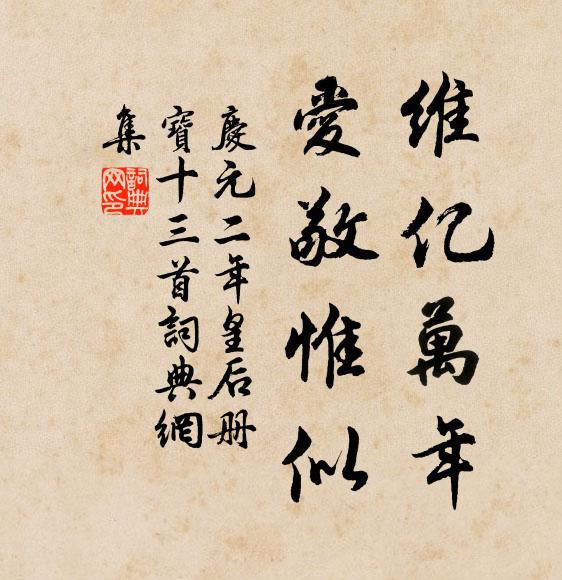 維亿萬年
愛敬惟似
慶元二年皇后册
寶十三首詞典網
集
詞典
网印